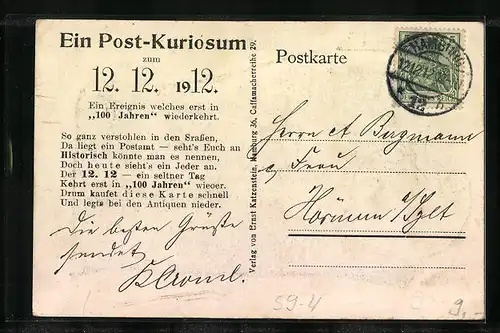 Ein Post-Kuriosum
zum
12. 12. 1912.
Ein Ereignis welches erst in
„100 Jahren“ wiederkehrt.
So ganz verstohlen in den Sraßen,
Da liegt ein Postamt — seht's Euch an
Historisch könnte man es nennen,
Doch heute sieht's ein Jeder an.
Der 12. 12 — ein seltner Tag
Kehrt erst in „100 Jahren“ wieder.
Drum kaufet diese Karte schnell
Und legts bei den Antiquen nieder.
Die besten Grüße
sendet
Verlag von Ernst Katzenstein, Hamburg 36, Caffamacherreihe 29.
Postkarte
HAMBURG
Herrn
u Frau
Sylt
59-4
9,-